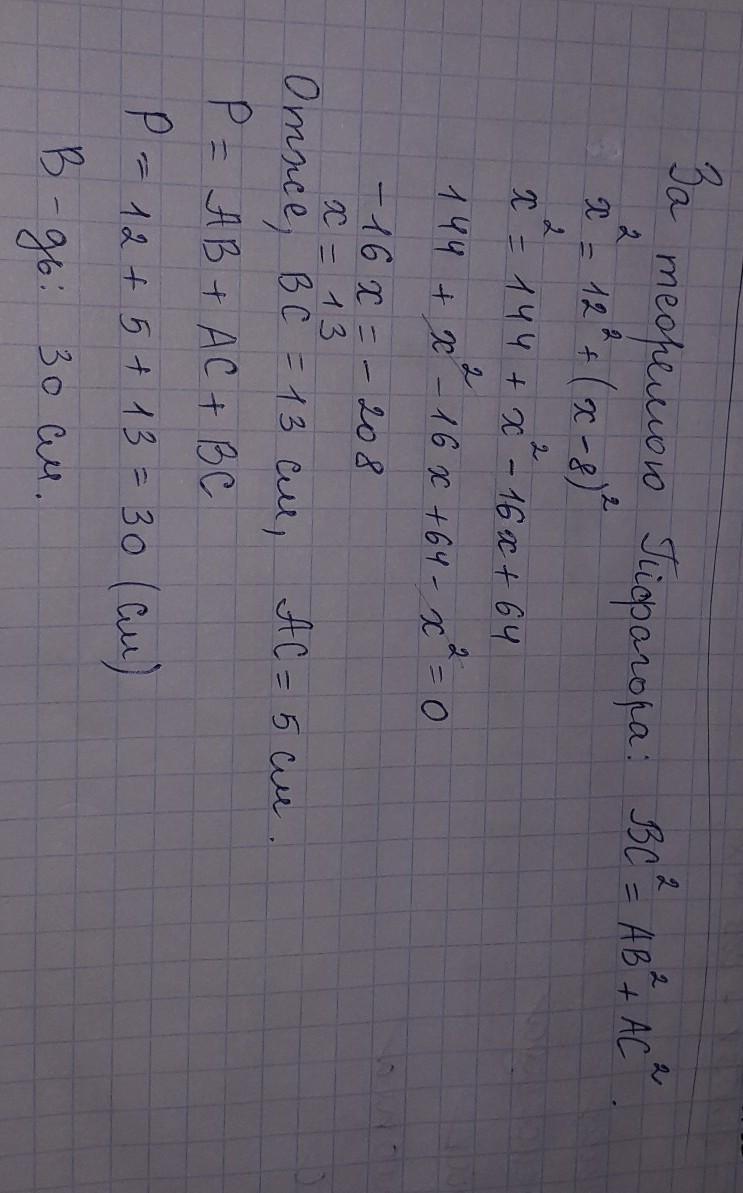 За теоремою Піфагора: BC² = AB² + AC².
x² = 12² + (x - 8)²
x² = 144 + x² - 16x + 64
144 + x² - 16x + 64 - x² = 0
-16x = -208
x = 13
Отже, BC = 13 см, AC = 5 см.
P = AB + AC + BC
P = 12 + 5 + 13 = 30 (см)
В-дь: 30 см.